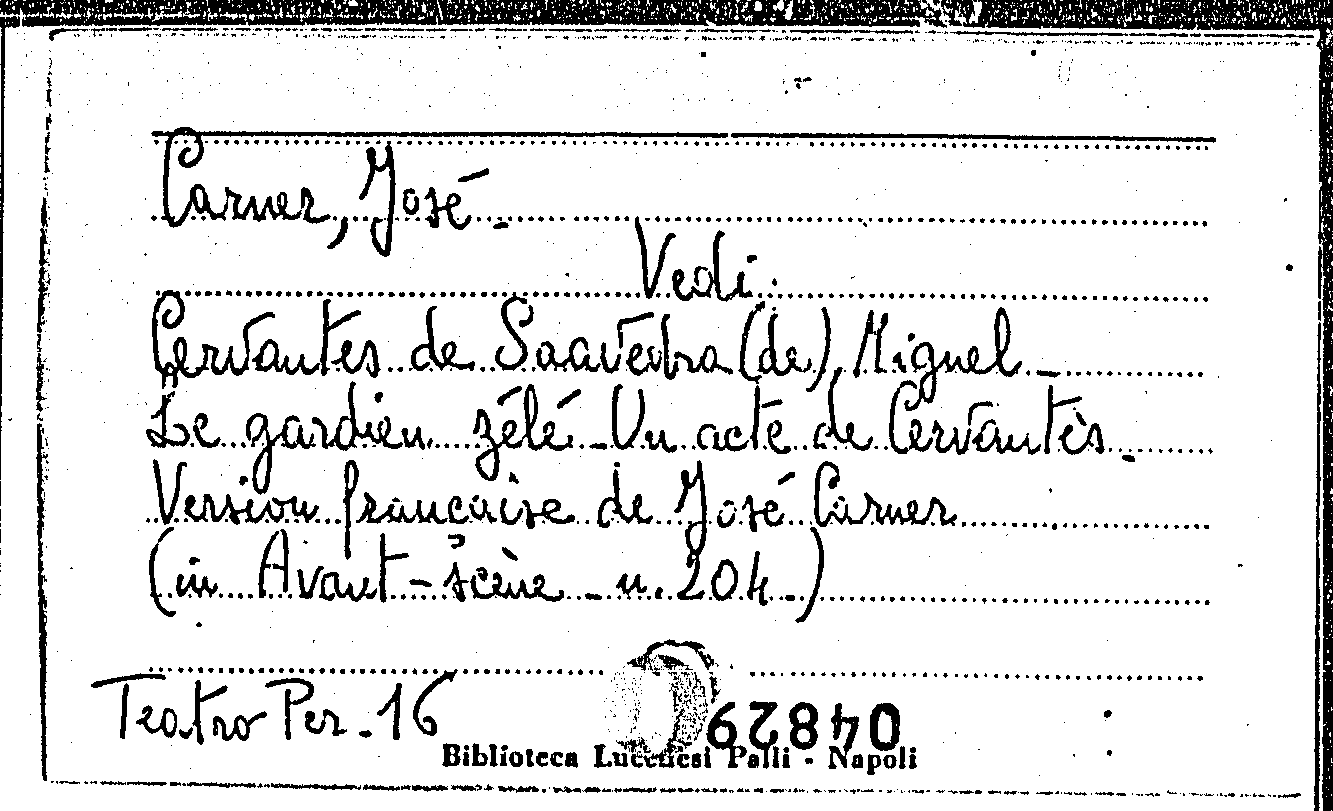 Carner, José -
Vedi:
Cervantes de Saavedra (de), Miguel -
Le gardien zélé - Un acte de Cervantès -
Version française de José Carner
(in Avant-scène - n. 204 -)
Teatro Per. - 16
04829
Biblioteca Lucchesi Palli - Napoli